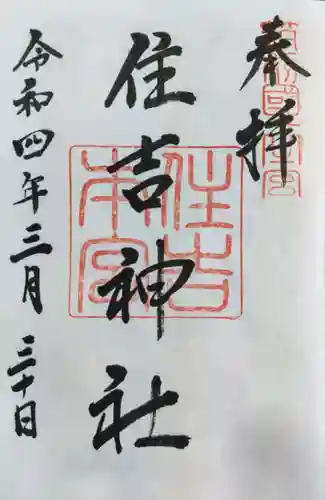 奉拝
住吉神社
令和四年三月三十日
住吉
本宮